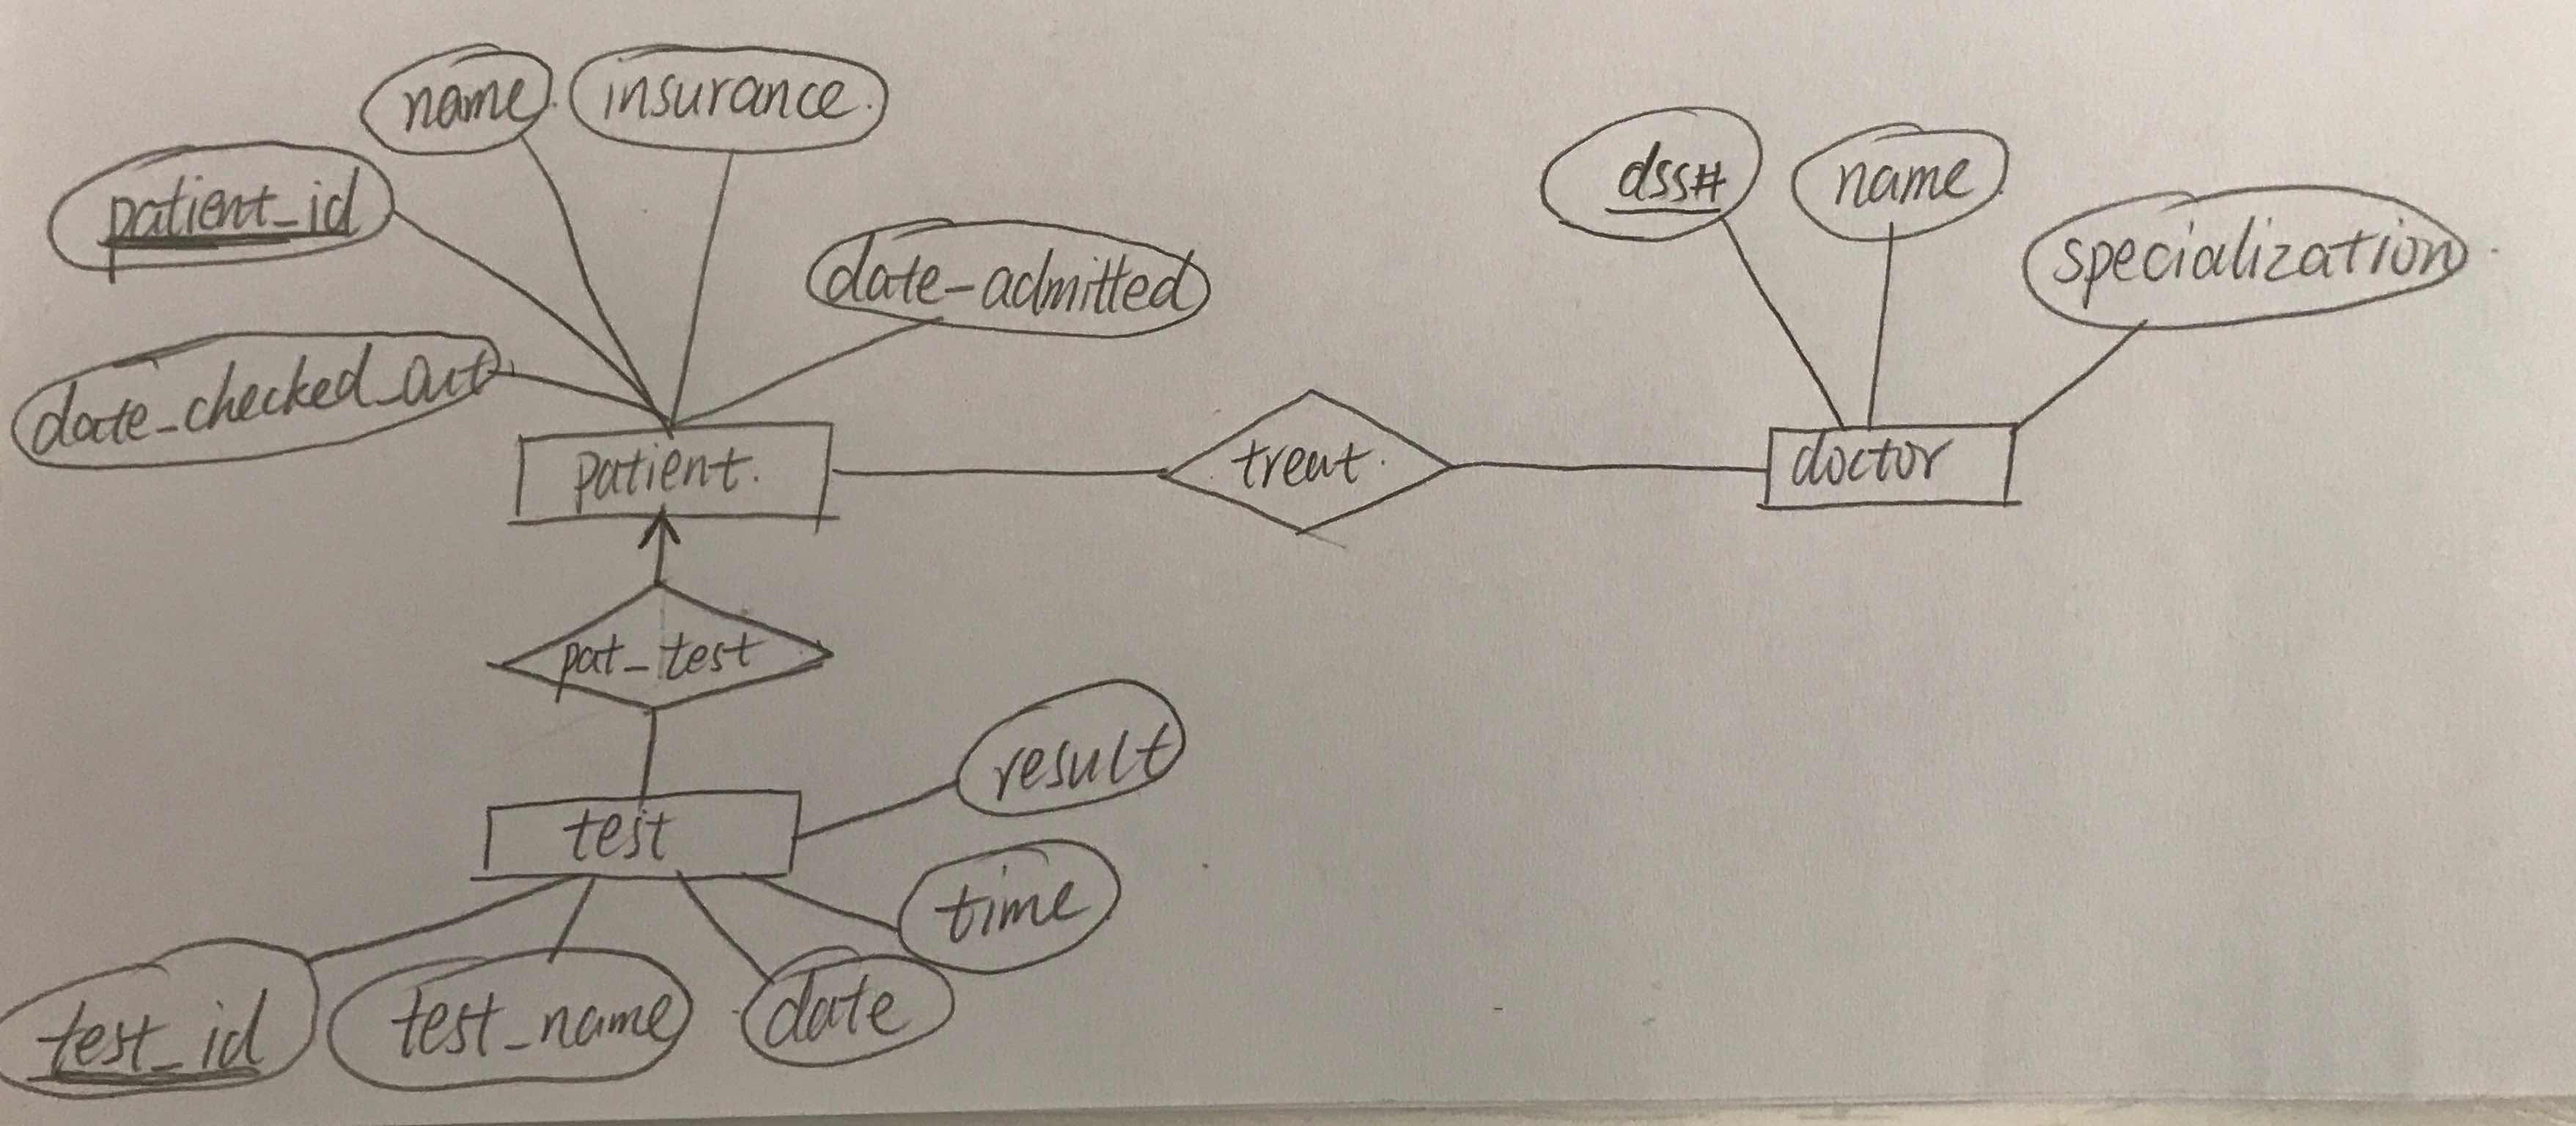 name
insurance.
patient_id
date-admitted
date_checked_out
patient.
treat.
dss#
name
specialization
doctor
pat_test
test
result
time
test_id
test_name
date